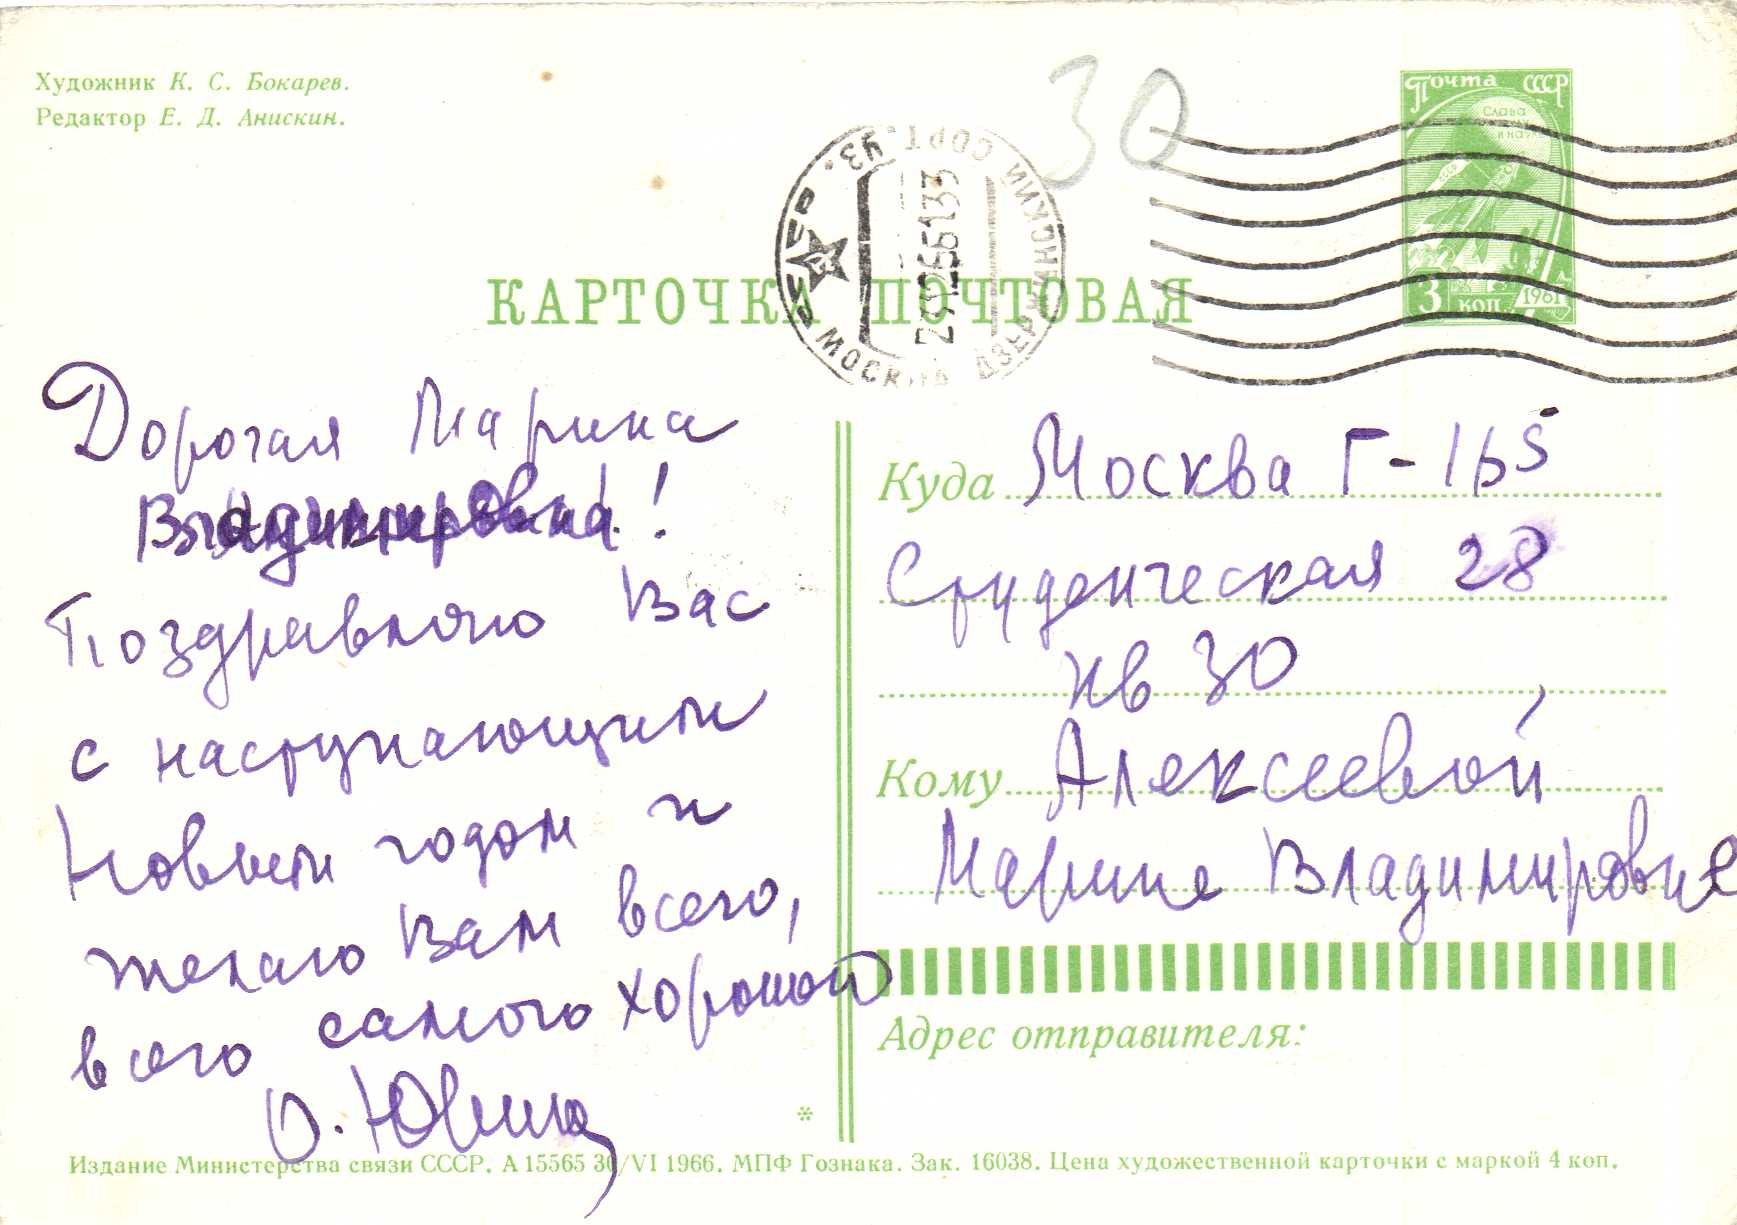 Художник К. С. Бокарев.
Редактор Е. Д. Анискин.
30
Почта СССР
Слава
и нау
3 коп 1961
СССР
МОСКВА ДЗЕРЖИНСКИЙ СОРТ. УЗ.
КАРТОЧКА ПОЧТОВАЯ
Дорогая Марина
Владимировна!
Поздравляю Вас
с наступающим
Новым годом и
желаю Вам всего,
всего самого хорошого
О. Юдина
Куда Москва Г-165
Студенческая 28
кв 30
Кому Алексеевой,
Марине Владимировне
Адрес отправителя:
*
Издание Министерства связи СССР. А 15565 30/VI 1966. МПФ Гознака. Зак. 16038. Цена художественной карточки с маркой 4 коп.